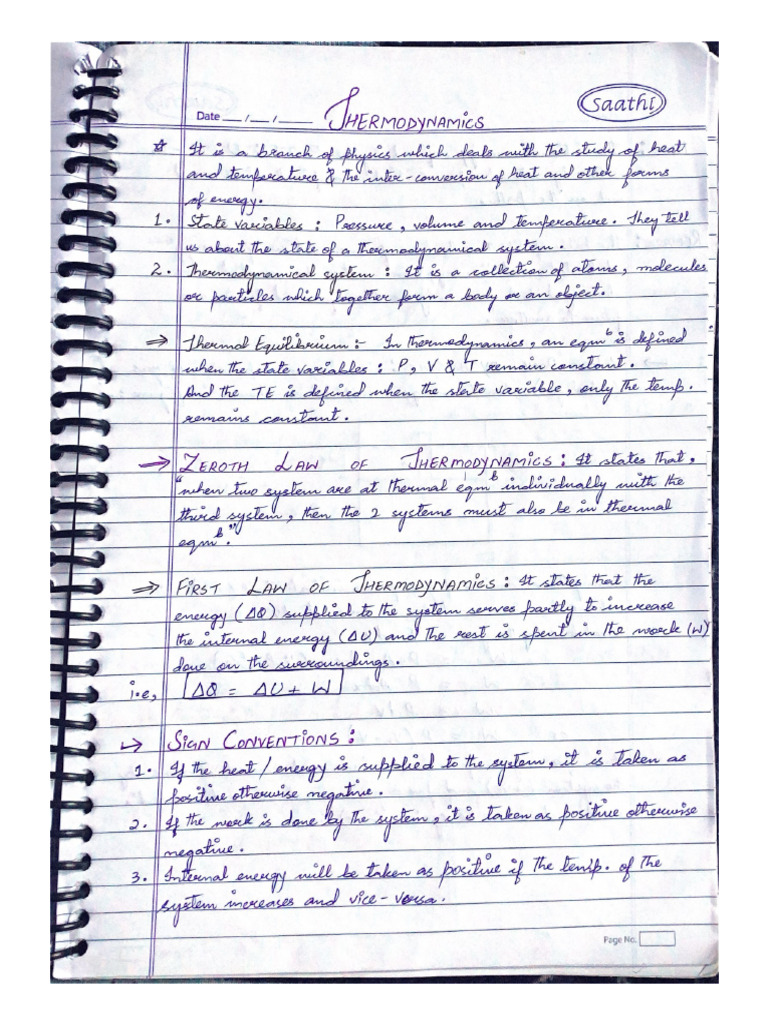 Saathi
Date __/__/____ THERMODYNAMICS
☆ It is a branch of physics which deals with the study of heat
and temperature & the inter-conversion of heat and other forms
of energy.
1. State variables : Pressure, volume and temperature. They tell
us about the state of a thermodynamical system.
2. Thermodynamical system : It is a collection of atoms, molecules
or particles which together form a body or an object.
⇒ Thermal Equilibrium :- In thermodynamics, an eqmᵇ is defined
when the state variables : P, V & T remain constant.
And the TE is defined when the state variable, only the temp.
remains constant.
→ ZEROTH LAW OF THERMODYNAMICS : It states that,
"when two system are at thermal eqmᵇ individually with the
third system, then the 2 systems must also be in thermal
eqmᵇ."
⇒ FIRST LAW OF THERMODYNAMICS : It states that the
energy (ΔQ) supplied to the system serves partly to increase
the internal energy (ΔU) and the rest is spent in the work (W)
done on the surroundings.
i.e, ΔQ = ΔU + W
↳ SIGN CONVENTIONS :
1. If the heat / energy is supplied to the system, it is taken as
positive otherwise negative.
2. If the work is done by the system, it is taken as positive otherwise
negative.
3. Internal energy will be taken as positive if the temp. of the
system increases and vice-versa.
Page No.